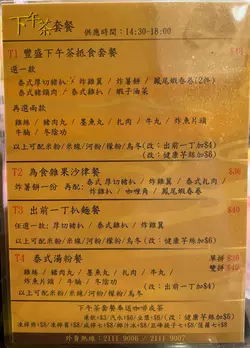 下午茶套餐 供應時間：14:30-18:00
T1 豐盛下午茶抵食套餐
選一款
泰式厚切豬扒 / 炸雞翼 / 炸薯餅 / 鳳尾蝦卷(2件)
泰式豬頸肉 / 泰式雞扒 / 蝦子油菜
再選兩款
雞絲 / 豬肉丸 / 墨魚丸 / 扎肉 / 牛丸 / 炸魚片頭
牛腩 / 冬陰功
以上可配米粉/米線/河粉/檬粉/烏冬(改:出前一丁加$4)
(改:健康芋絲加$6)
T2 為食雜果沙律餐 $36
炸薯餅一份 再配: 泰式厚切豬扒 / 炸雞翼 / 泰式扎肉 /
泰式雞扒 / 咖喱角 / 鳳尾蝦卷
T3 出前一丁扒麵餐 $40
任選一款: 厚切豬扒 / 泰式雞扒 / 炸雞翼
(改:米粉/米線/河粉/檬粉/烏冬)
T4 泰式湯粉餐 單拼 $36
雞絲 / 豬肉丸 / 墨魚丸 / 扎肉 / 牛丸 / 雙拼 $40
炸魚片頭 / 牛腩 / 冬陰功
以上可配米粉/米線/河粉/檬粉/烏冬(改:出前一丁加$4)
(改:健康芋絲加$6)
下午茶套餐奉送咖啡或茶
外賣熱線: 2111 9006 / 2111 9007